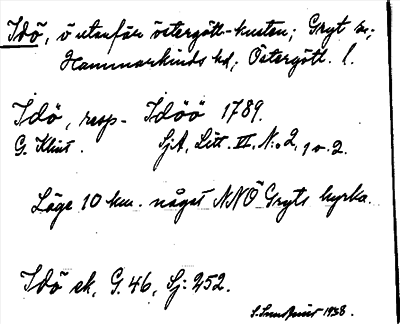 Idö, ö utanför östergött-kusten; Gryt sn;
Hammarkinds hd; Östergötl. l.
Idö, resp. Idöö 1789.
G. Klint. SjA, Litt. II, N:o 2, 1 o. 2.
Läge 10 km. något NNÖ Gryts kyrka.
Idö ek, G. 46, Sj: 252.
1938.